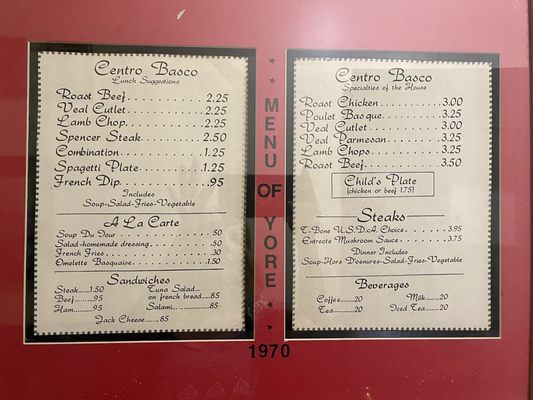 Centro Basco
Lunch Suggestions
Roast Beef. . . . . . . . . . . . 2.25
Veal Cutlet. . . . . . . . . . . 2.25
Lamb Chop. . . . . . . . . . . 2.25
Spencer Steak. . . . . . . . . 2.50
Combination. . . . . . . . . . 1.25
Spagetti Plate. . . . . . . . . 1.25
French Dip. . . . . . . . . . . .95
Includes
Soup-Salad-Fries-Vegetable
A La Carte
Soup Du Jour . . . . . . . . . . .50
Salad-homemade dressing. . . . . .50
French Fries. . . . . . . . . . . .30
Omelette Basquaise. . . . . . . . 1.50
Sandwiches
Steak.....1.50
Beef.......95
Ham........95
Tuna Salad...
on french bread.....85
Salami...............85
Jack Cheese.......85
MENU OF YORE
1970
Centro Basco
Specialties of the House
Roast Chicken. . . . . . . . . . 3.00
Poulet Basque. . . . . . . . . . 3.25
Veal Cutlet . . . . . . . . . . . 3.00
Veal Parmesan. . . . . . . . . 3.25
Lamb Chops. . . . . . . . . . . 3.25
Roast Beef. . . . . . . . . . . . 3.50
Child's Plate
(chicken or beef 1.75)
Steaks
T-Bone U.S.D.A. Choice. . . . . . . 3.95
Entreote Mushroom Sauce. . . . . . 3.75
Dinner Includes
Soup-Hors D'oenures-Salad-Fries-Vegetable
Beverages
Coffee......20
Tea..........20
Milk........20
Iced Tea....20